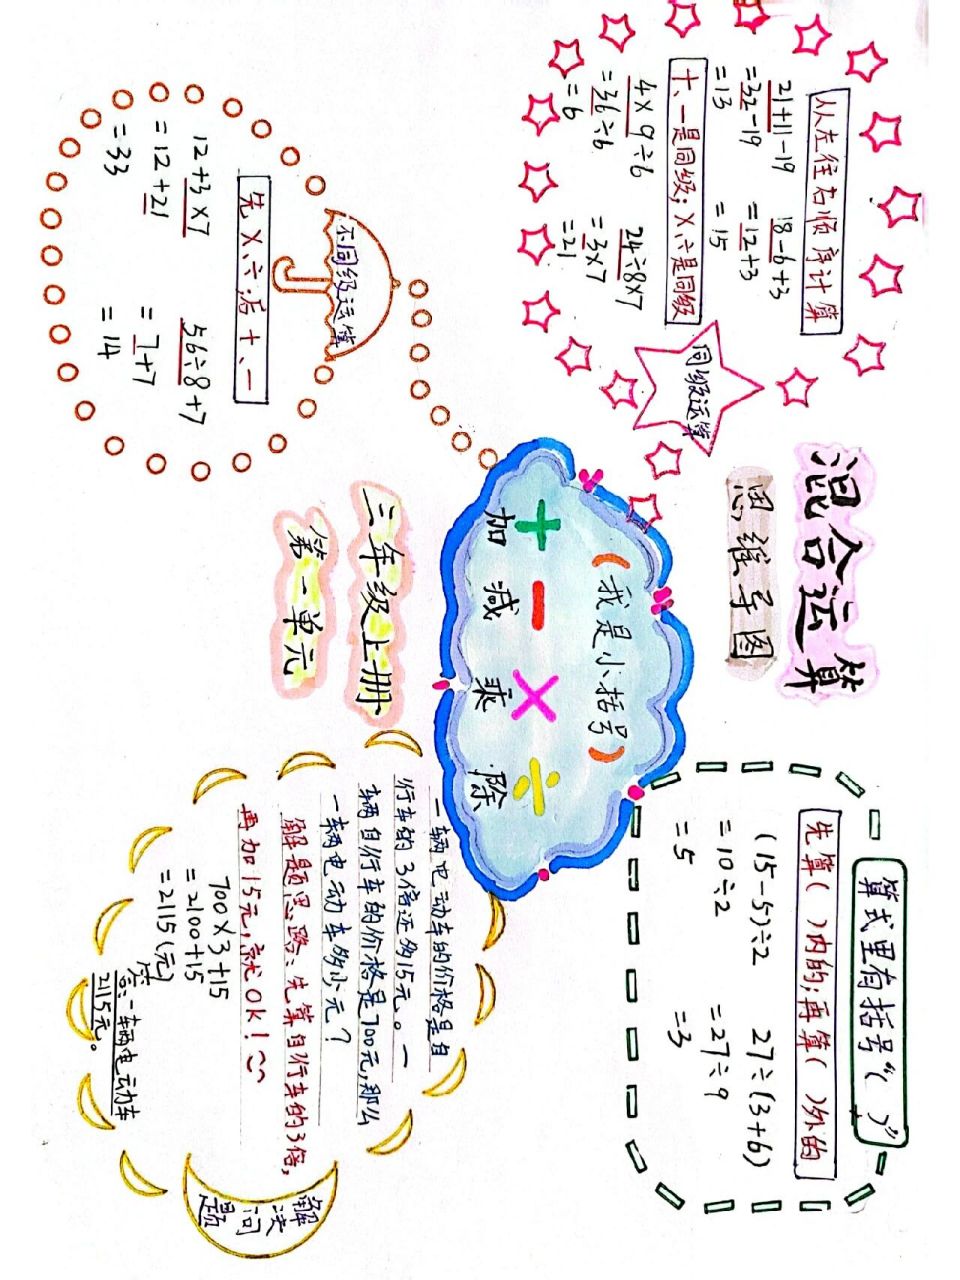 混合运算
思维导图
从左往右顺序计算
21+11-19
=32-19
=13
18-6+3
=12+3
=15
十、一是同级；×、六是同级
4×9÷6
=36÷6
=6
24÷8×7
=3×7
=21
同级运算
不同级运算
先×、六后十、一
12+3×7
=12+21
=33
56÷8+7
=7+7
=14
(我是小括号)
+ - × ÷
加 减 乘 除
三年级上册
第一单元
算式里有括号“( )”
先算( )内的；再算( )外的
(15-5)÷2
=10÷2
=5
27÷(3+6)
=27÷9
=3
一辆电动车的价格是自
行车的3倍还多15元。一
辆自行车的价格是700元,那么
一辆电动车多少元？
解题思路：先算自行车的3倍,
再加15元,就OK!
700×3+15
=2100+15
=2115(元)
答:一辆电动车
2115元。
解决问题